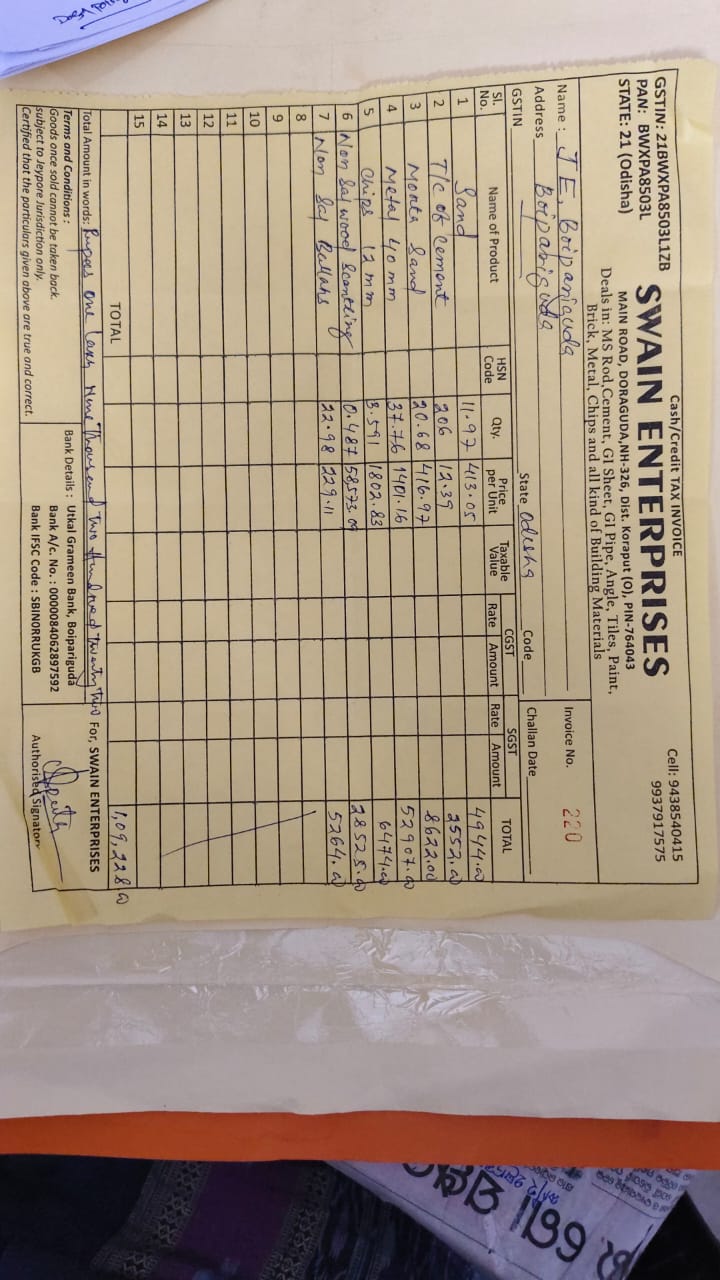 Cash/Credit TAX INVOICE
GSTIN: 21BWXPA8503L1ZB
PAN: BWXPA8503L
STATE: 21 (Odisha)
Cell: 9438540415
9937917575
SWAIN ENTERPRISES
MAIN ROAD, DORAGUDA,NH-326, Dist. Koraput (O), PIN-764043
Deals in: MS Rod,Cement, GI Sheet, GI Pipe, Angle, Tiles, Paint,
Brick, Metal, Chips and all kind of Building Materials
Name : J E, Boipariguda Invoice No. 220
Address Boipariguda Challan Date
GSTIN State Odisha Code
Sl. No. Name of Product HSN Code Qty. Price per Unit Taxable Value CGST Rate Amount SGST Rate Amount TOTAL
1 Sand 11.97 413.05 4944.00
2 T/c of Cement 206 12.39 2552.00
3 Morta Sand 20.68 416.97 8622.00
4 Metal 40 mm 37.76 1401.16 52907.00
5 Chips 12 mm 3.591 1802.83 6474.00
6 Non Sal wood Scantling 0.487 58573.09 28525.00
7 Non Sal Bullahs 22.98 229.11 5264.00
8
9
10
11
12
13
14
15
TOTAL 1,09,228.00
Total Amount in words: Rupees one Lakh Nine Thousand Two Hundred twenty two
For, SWAIN ENTERPRISES
Terms and Conditions :
Goods once sold cannot be taken back.
subject to Jeypore Jurisdiction only.
Certified that the particulars given above are true and correct.
Bank Details : Utkal Grameen Bank, Boipariguda
Bank A/c. No. : 0000084062897592
Bank IFSC Code : SBIN0RRUKGB
Authorised Signatory